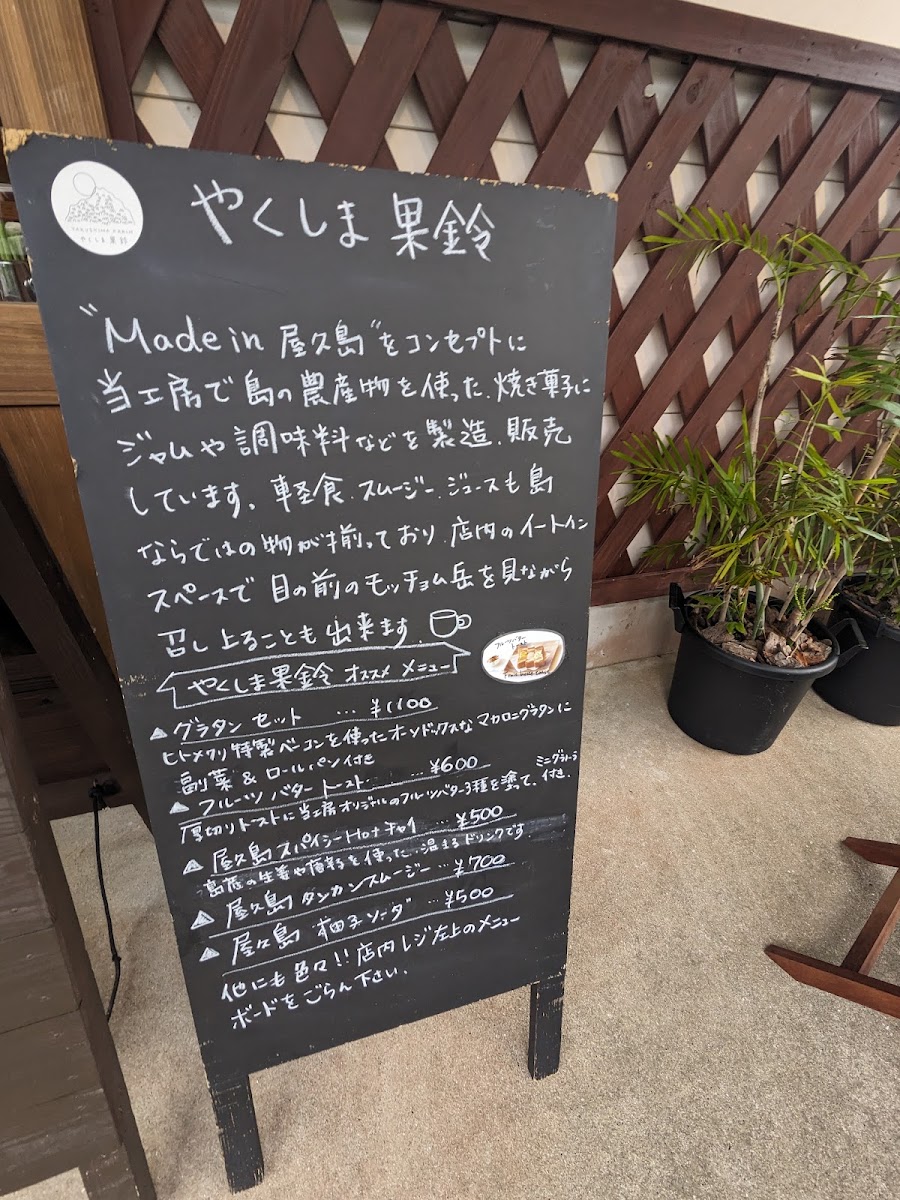 やくしま果鈴
やくしま 果鈴
"Made in 屋久島"をコンセプトに
当工房で島の農産物を使った、焼き菓子に
ジャムや調味料などを製造、販売
しています。軽食、スムージー、ジュースも島
ならではの物が揃っており、店内のイートイン
スペースで目の前のモッチョム岳を見ながら
召し上ることも出来ます。
やくしま果鈴 オススメ メニュー
グラタン セット ... ¥1100
ヒトメクリ特製ベーコンを使ったオーソドックスなマカロニグラタンに
副菜 & ロールパン付き
フルーツ バター トースト ... ¥600
厚切りトーストに当工房オリジナルのフルーツバター3種を塗って、ミニグラノーラ付き.
屋久島 スパイシーHotチャイ ... ¥500
島産の生姜や椿茶を使った、温まるドリンクです
屋久島 タンカンスムージー ... ¥700
屋久島 柚子ソーダ ... ¥500
他にも色々!! 店内レジ左上のメニュー
ボードをごらん下さい.